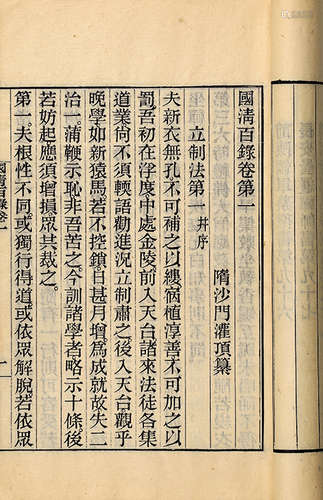 國清百錄卷第一
隋沙門灌頂纂
立制法第一 并序
夫新衣無孔。不可補之以縷。宿植淳善。不可加之以
罰。吾初在浮度。中處金陵。前入天台。諸來法徒。各集
道業。尚不須輭語勸進。況立制肅之。後入天台。觀乎
晚學。如新猿馬。若不控鎖。日甚月增。為成就故。失二
治一。蒲鞭示恥。非吾苦之。今訓諸學者。略示十條。後
若妨起。應須增損。眾共裁之。
第一。夫根性不同。或獨行得道。或依眾解脫。若依眾
國清百錄卷一
一